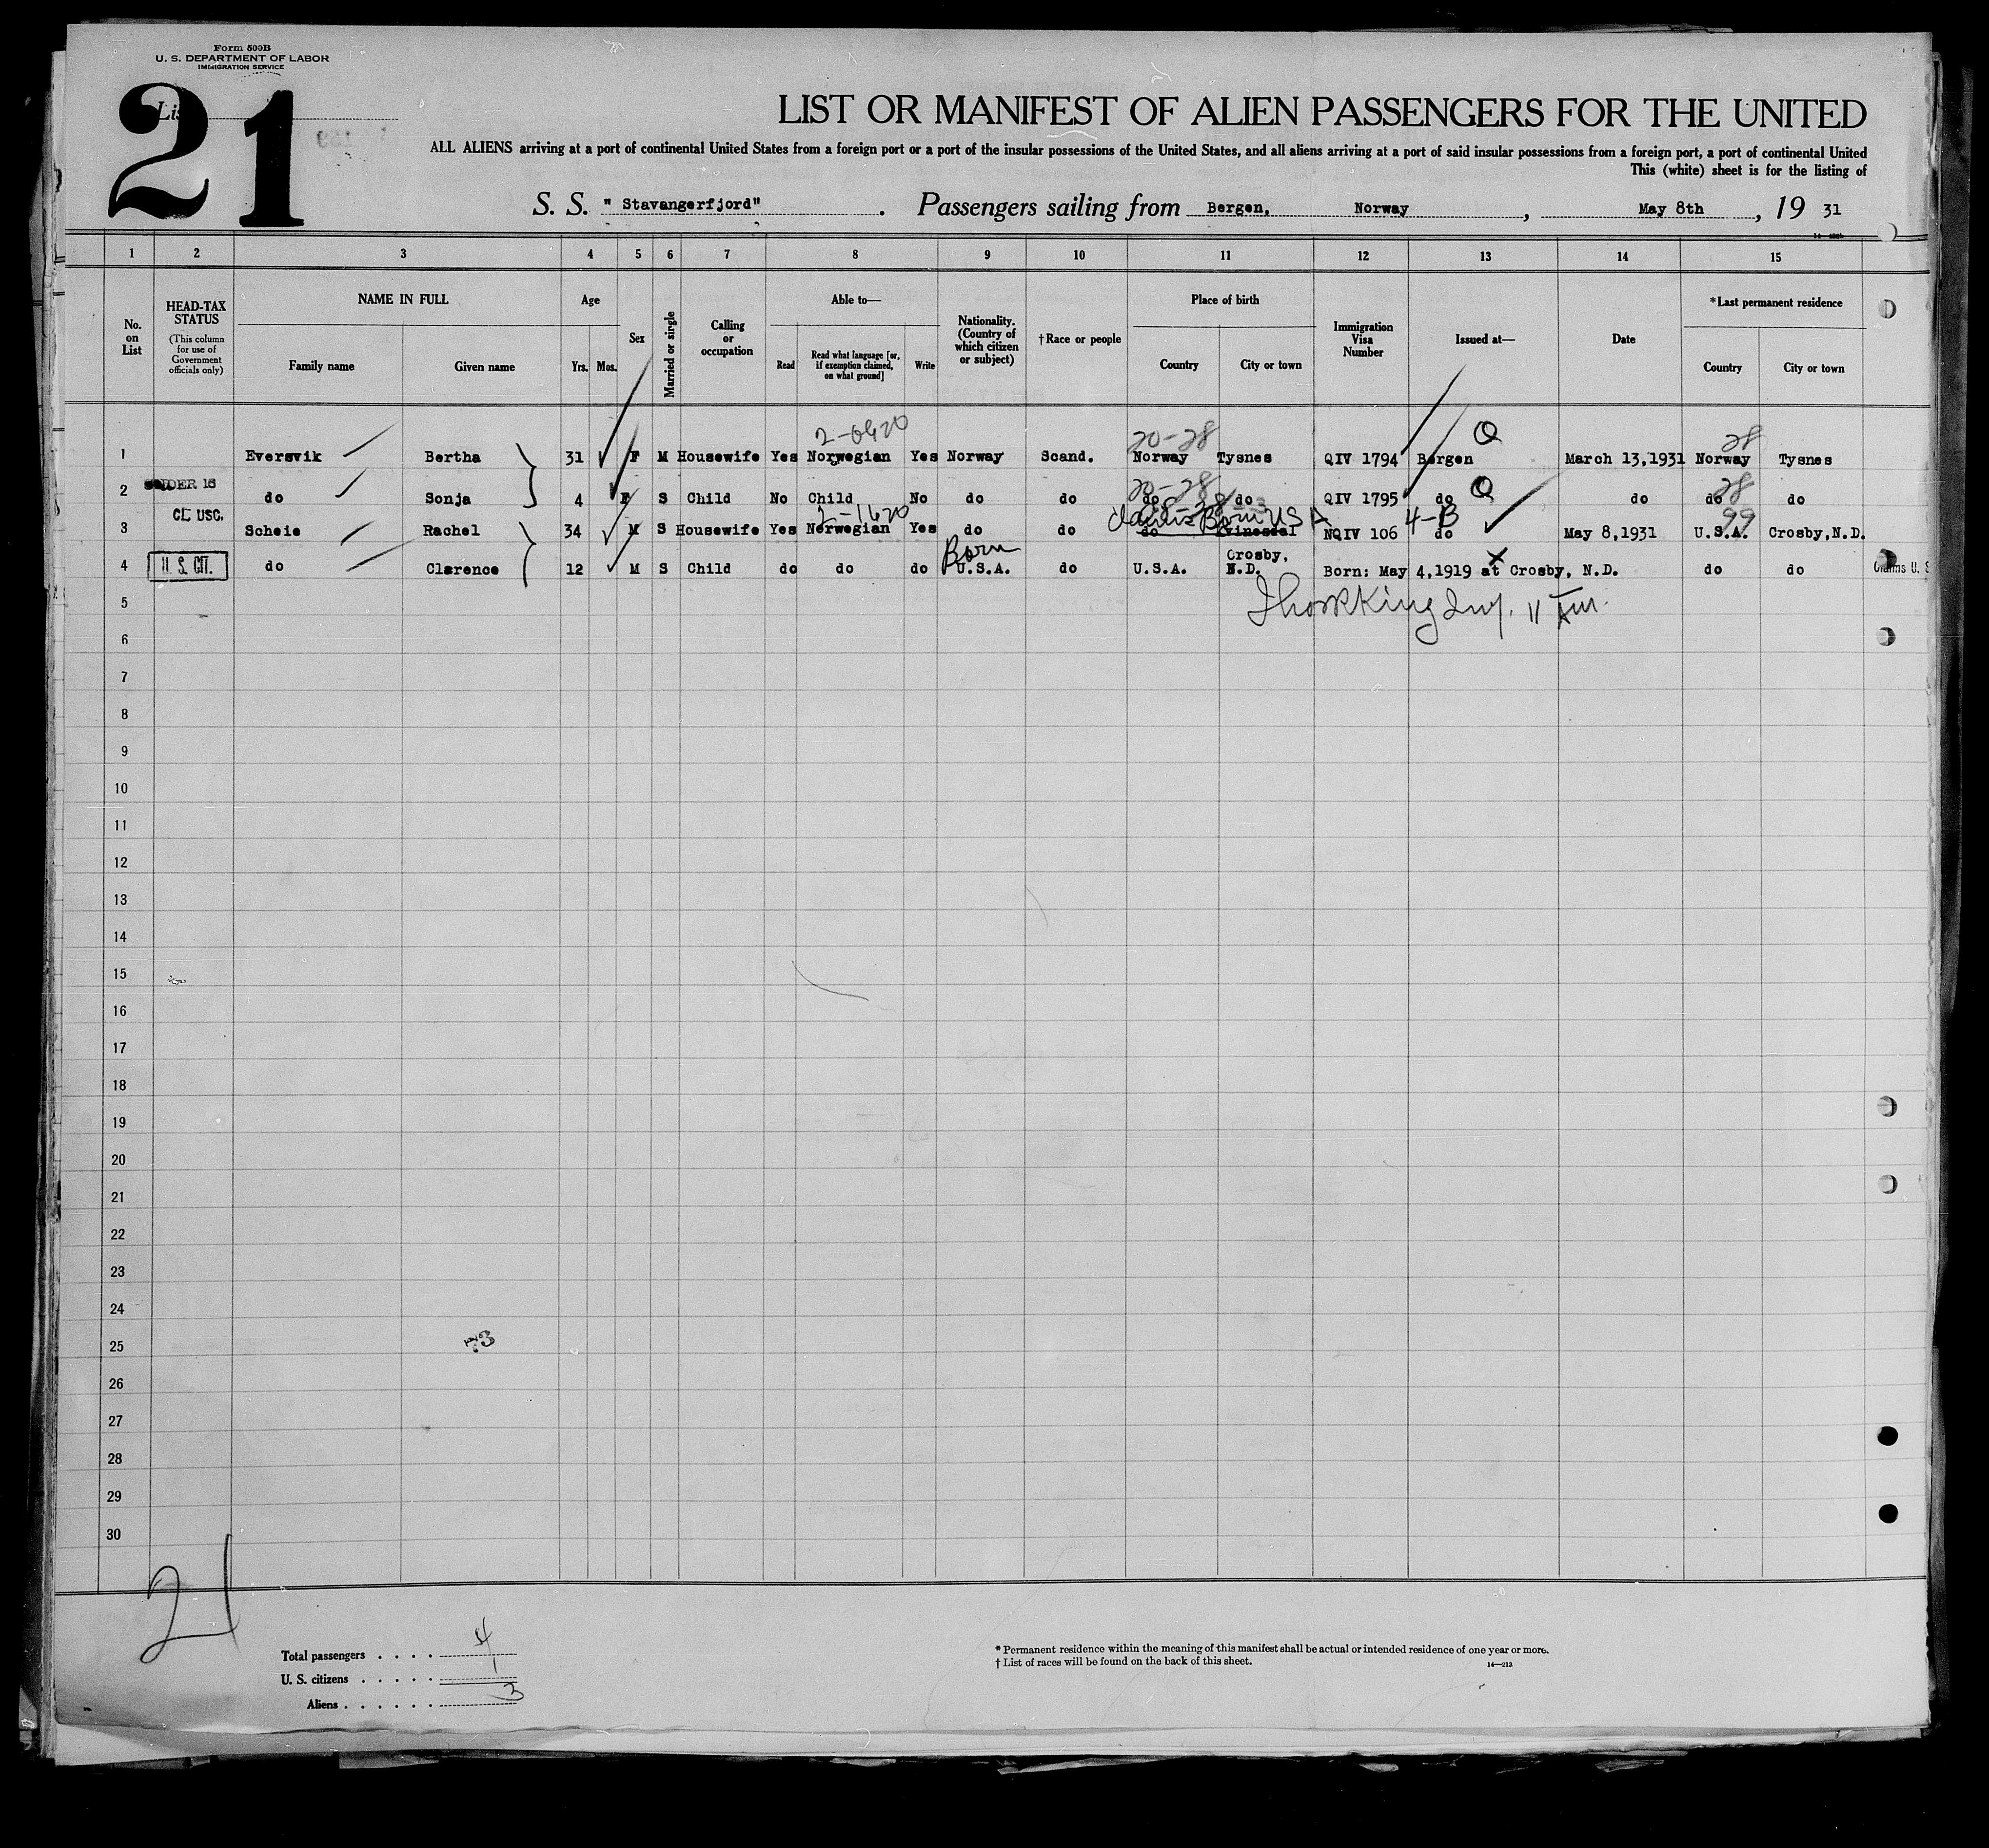 Form 500B
U. S. DEPARTMENT OF LABOR
IMMIGRATION SERVICE
21
LIST OR MANIFEST OF ALIEN PASSENGERS FOR THE UNITED
ALL ALIENS arriving at a port of continental United States from a foreign port or a port of the insular possessions of the United States, and all aliens arriving at a port of said insular possessions from a foreign port, a port of continental United
This (white) sheet is for the listing of
S. S. " Stavangerfjord" . Passengers sailing from Bergen, Norway , May 8th , 19 31
1 2 3 4 5 6 7 8 9 10 11 12 13 14 15
No. on List
HEAD-TAX STATUS
(This column for use of Government officials only)
NAME IN FULL
Family name Given name
Age
Yrs. Mos.
Sex
Married or single
Calling or occupation
Able to—
Read
Read what language [or, if exemption claimed, on what ground]
Write
Nationality. (Country of which citizen or subject)
† Race or people
Place of birth
Country City or town
Immigration Visa Number
Issued at—
Date
*Last permanent residence
Country City or town
2-0620 20-28 Q 28
1 Eversvik Bertha 31 F M Housewife Yes Norwegian Yes Norway Scand. Norway Tysnes QIV 1794 Bergen March 13,1931 Norway Tysnes
20-28 Q 28
2 UNDER 16 do Sonja 4 F S Child No Child No do do do do QIV 1795 do do do do
2-1620 Born USA 4-B 99
3 CL USC. Scheie Rachel 34 M S Housewife Yes Norwegian Yes do do do Kvinesdal NQIV 106 do May 8,1931 U.S.A. Crosby,N.D.
Born
4 U. S. CIT. do Clarence 12 M S Child do do do U.S.A. do U.S.A. Crosby, N.D. Born: May 4,1919 at Crosby, N.D. do do Claims U. S
5
6
7
8
9
10
11
12
13
14
15
16
17
18
19
20
21
22
23
24
25
26
27
28
29
30
21
Total passengers . . . . 4
U. S. citizens . . . . . 1
Aliens . . . . . . 3
* Permanent residence within the meaning of this manifest shall be actual or intended residence of one year or more.
† List of races will be found on the back of this sheet.
14—213